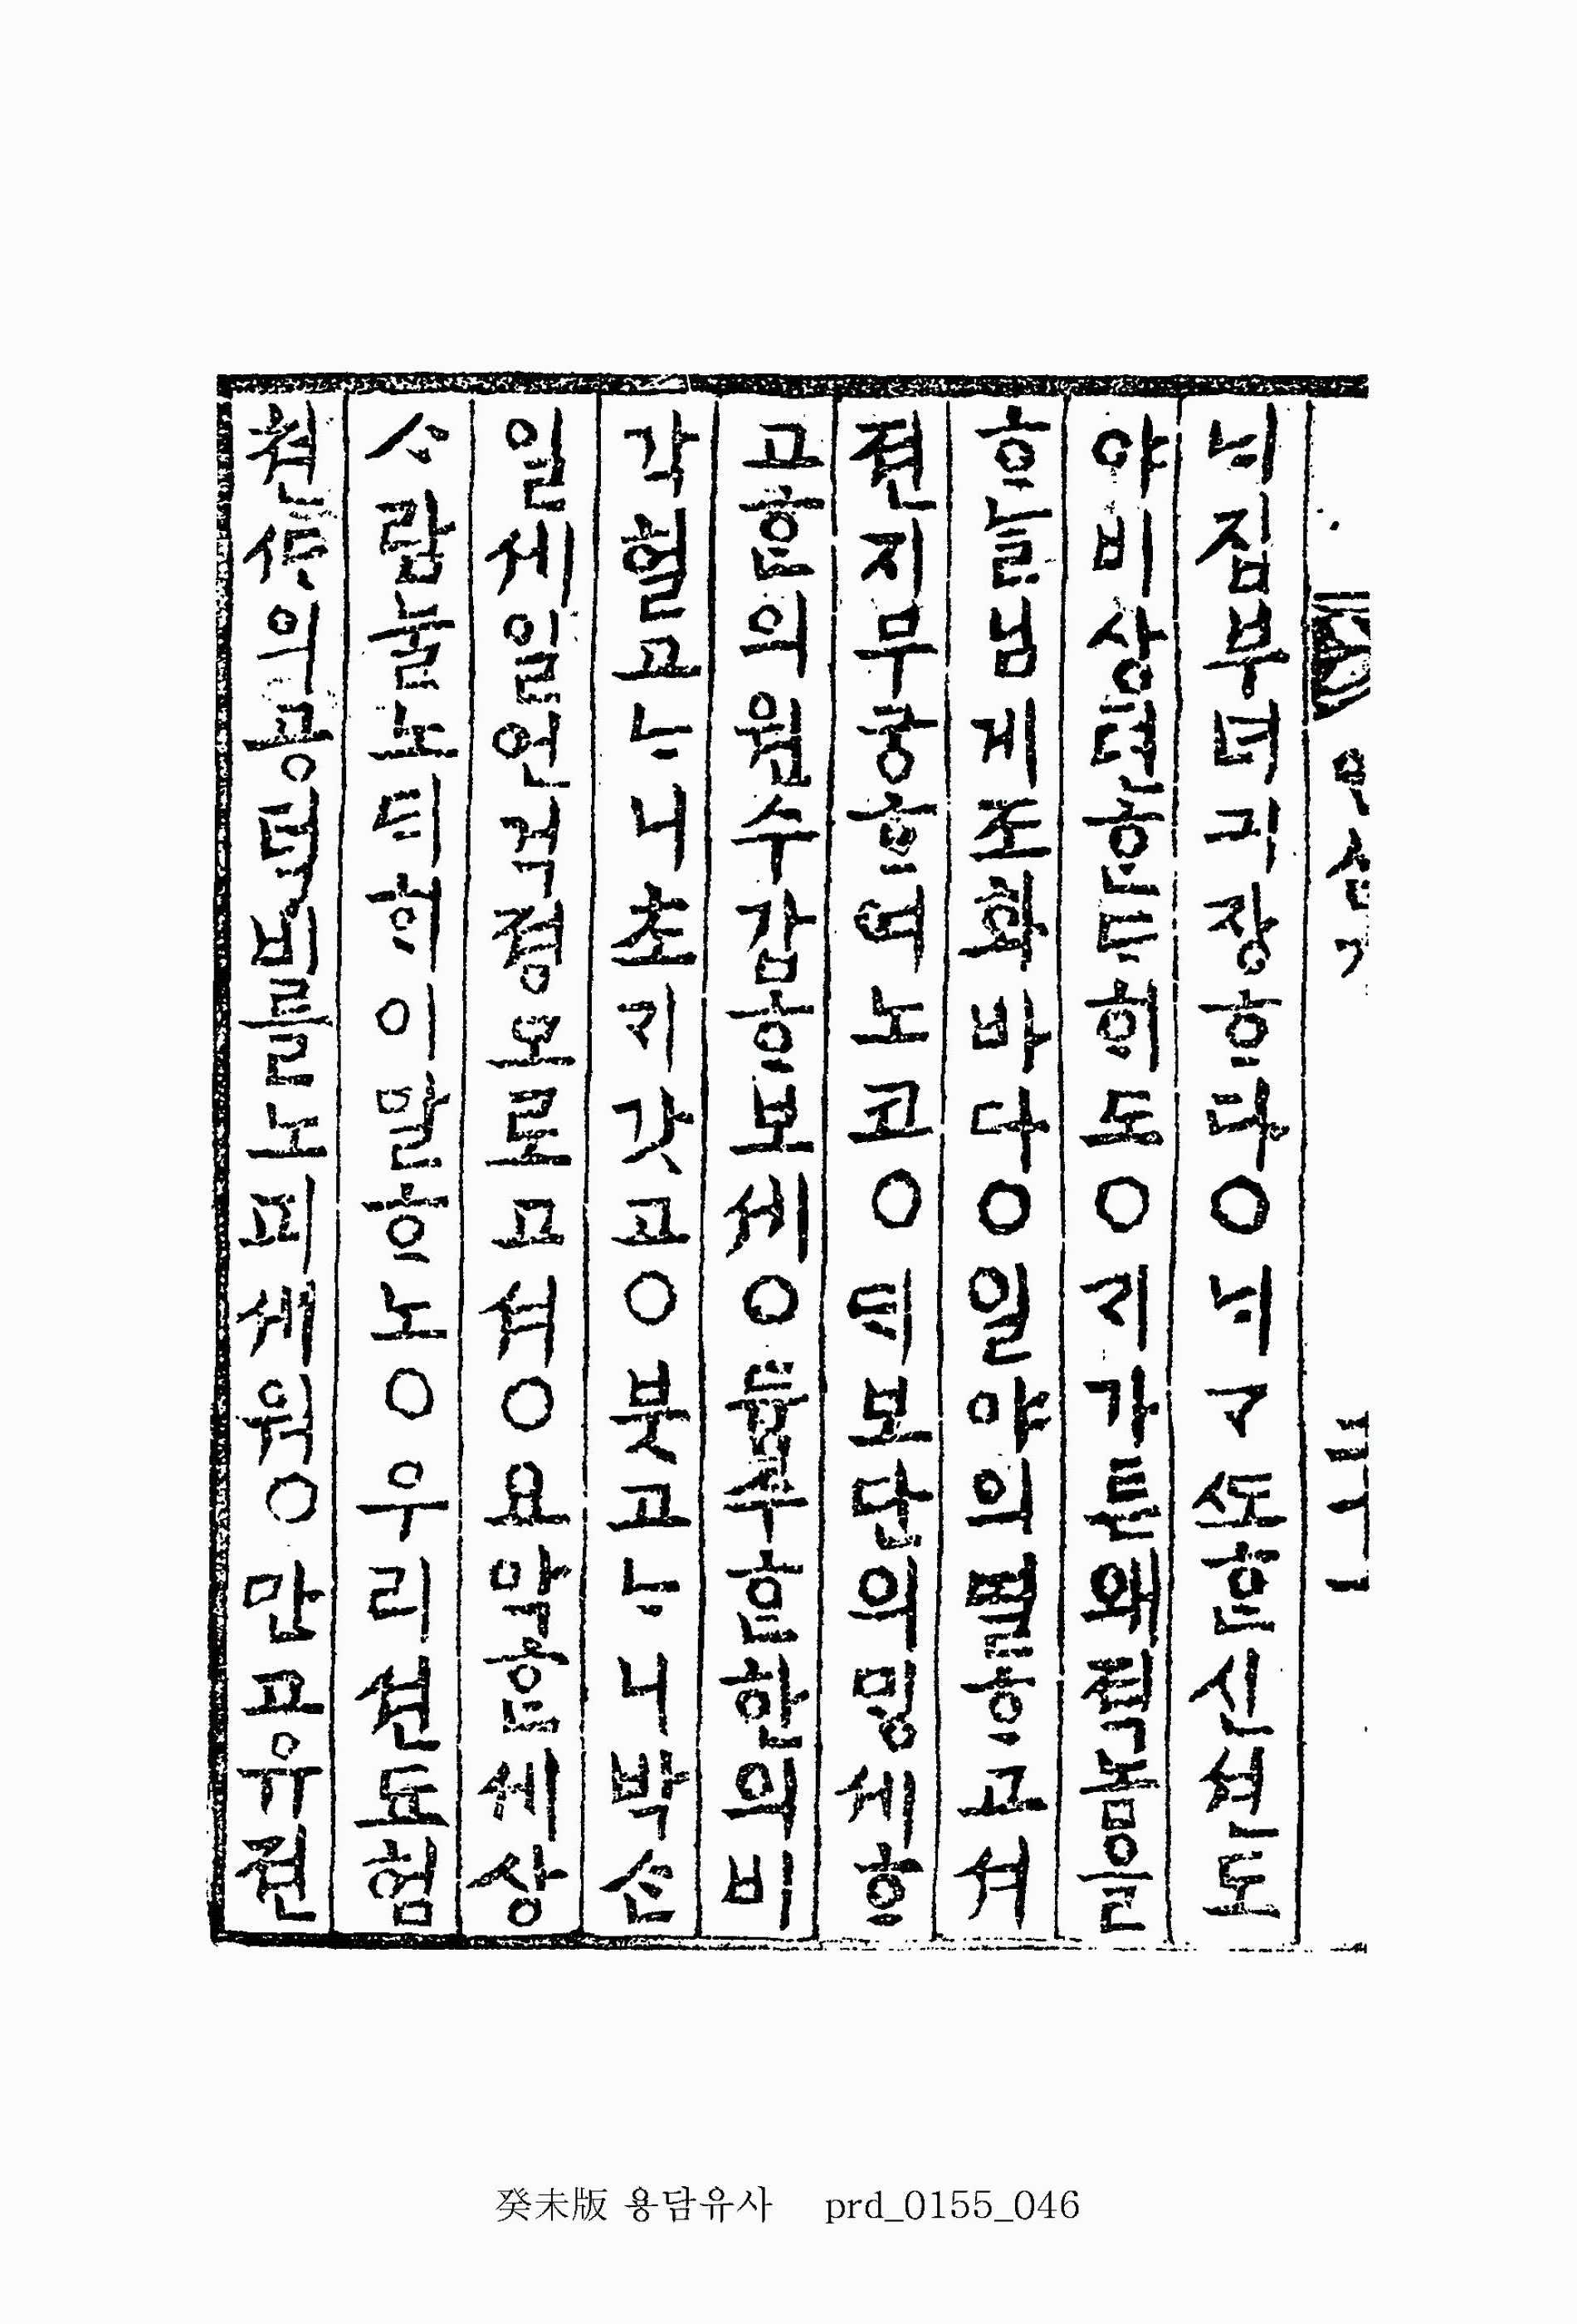 안심가
二十一
ᄂᆡ집부녀긔장ᄒᆞ다○ᄂᆡᄀᆞᄯᅩᄒᆞᆫ신션도
야비상텬ᄒᆞᆫᄃᆞᄒᆡ도○지가튼왜젹놈을
ᄒᆞᄂᆞᆯ님게조화바다○일야의멸ᄒᆞ고셔
젼지무궁ᄒᆞ여노코○ᄃᆡ보단의밍세ᄒᆞ
고ᄒᆞᆫ의원수갑ᄒᆞ보세○듕수ᄒᆞᆫ한의비
각헐고ᄂᆞ니초지갓고○붓고ᄂᆞ니박ᄉᆞᆫ
일세일언걱졍모로고셔○요악ᄒᆞᆫ세상
ᄉᆞ람눌노ᄃᆡᄒᆡ이말ᄒᆞ노○우리션됴험
쳔ᄯᆞ의공덕비를노피세워○만고유젼
癸未版 용담유사 prd_0155_046